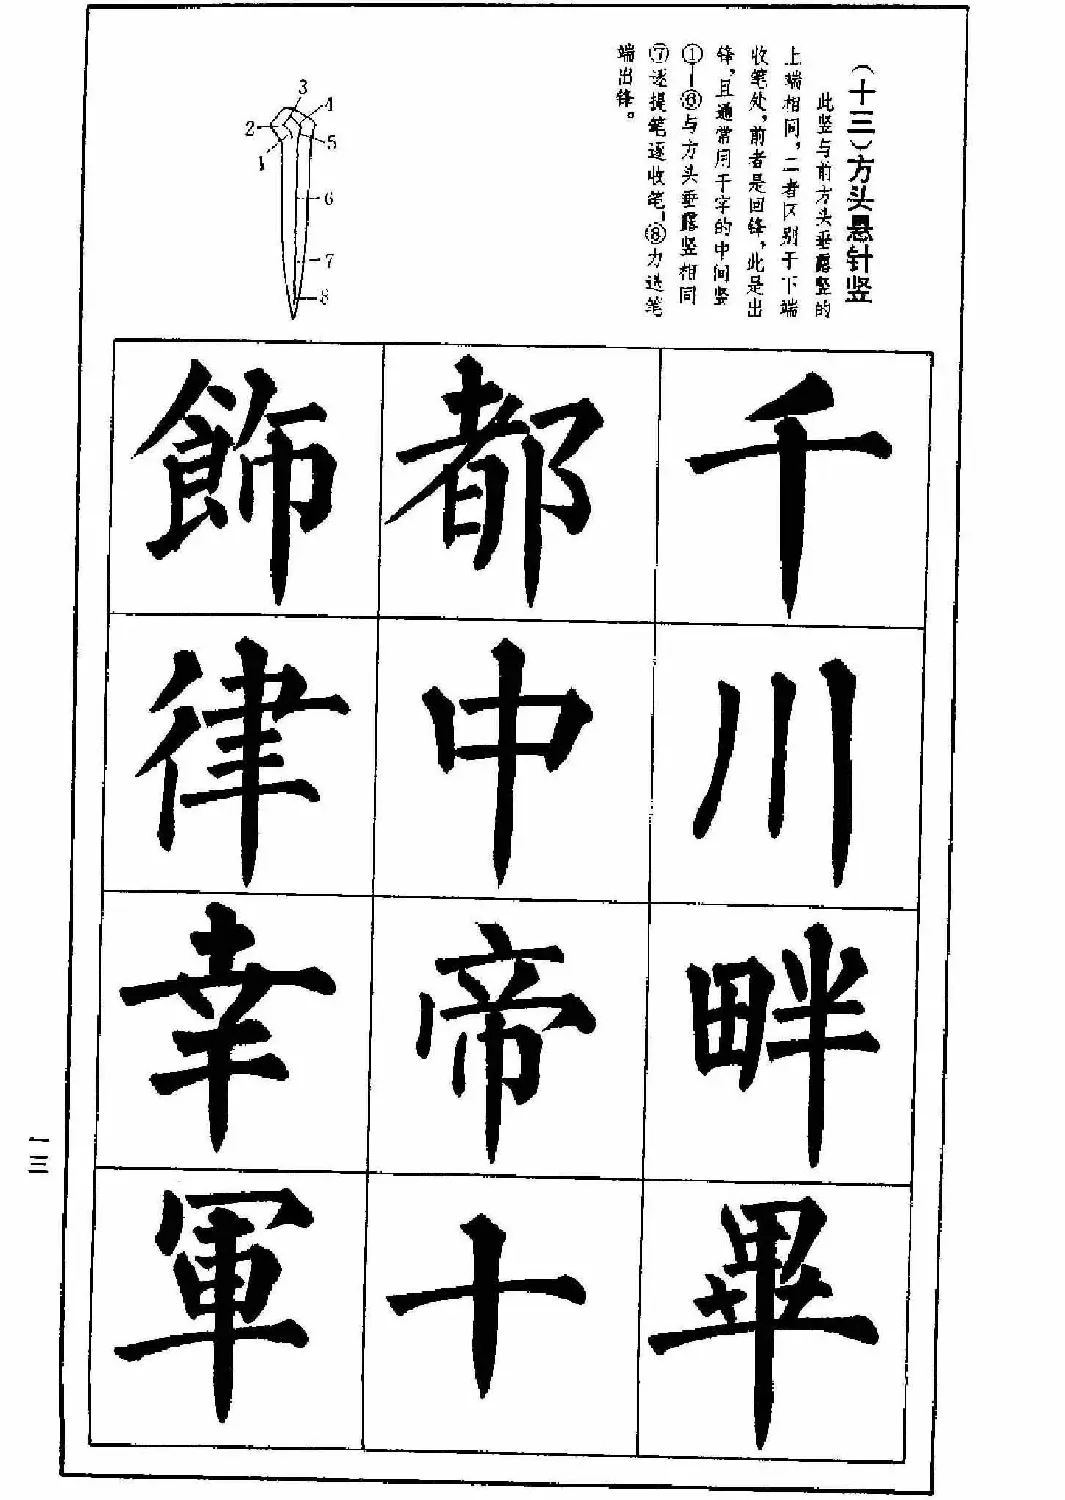 （十三）方头悬针竖
此竖与前方头垂露竖的
上端相同，二者区别于下端
收笔处，前者是回锋，此是出
锋，且通常用于字的中间竖
①—⑥与方头垂露竖相同
⑦逐提笔逐收笔，⑧力送笔
端出锋。
1
2
3
4
5
6
7
8
千
川
畔
畢
都
中
帝
十
飾
律
幸
軍
一三